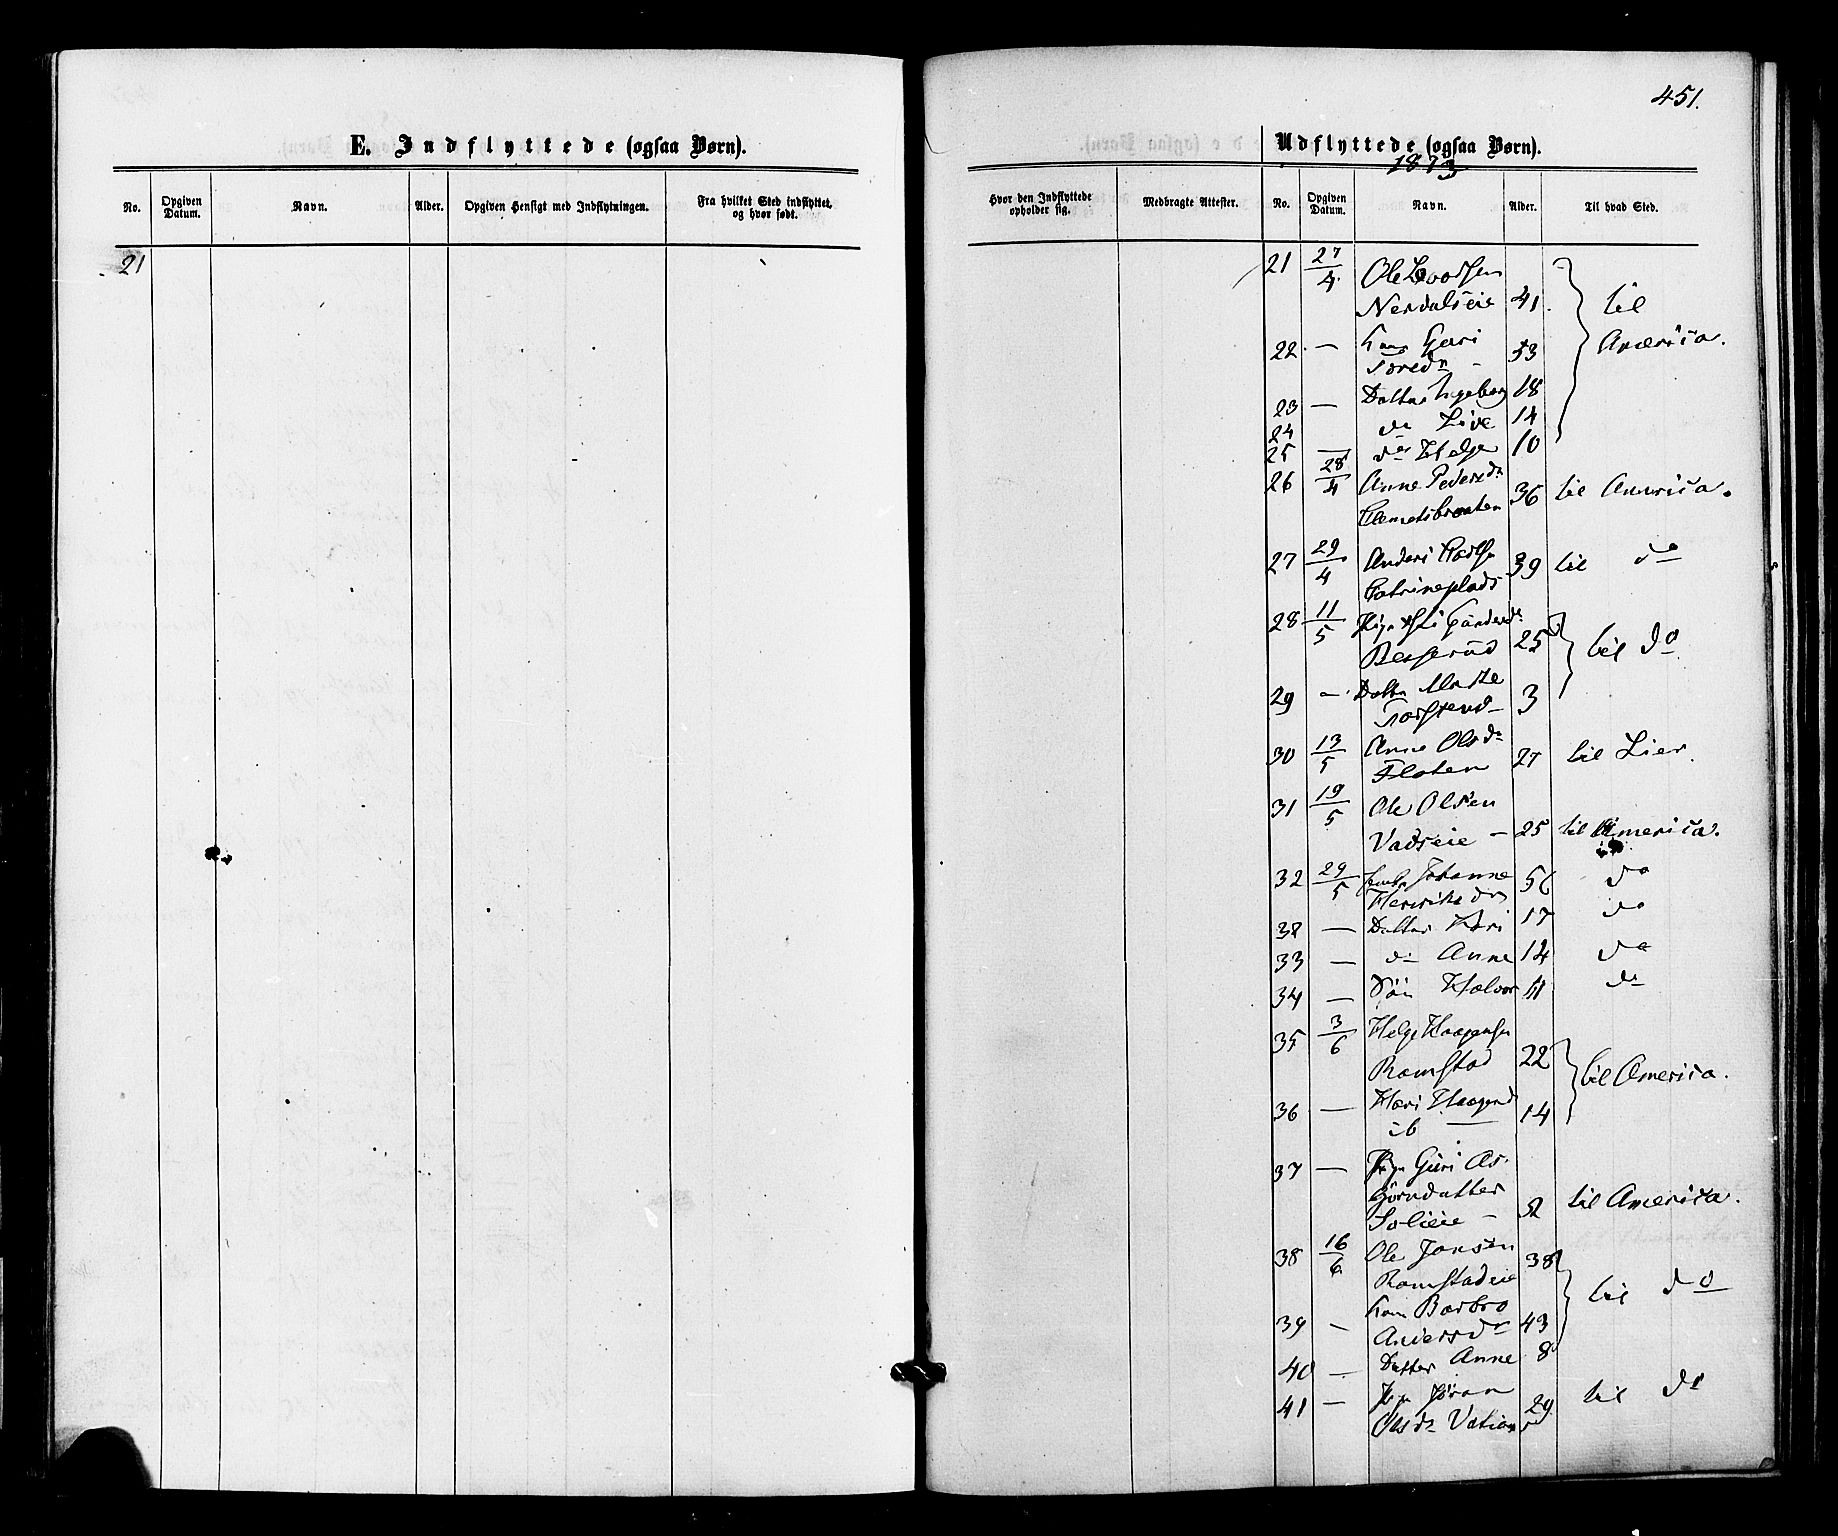 451.
E. Indflyttede (ogsaa Børn).
No.
Opgiven Datum.
Navn.
Alder.
Opgiven Hensigt med Indflytningen.
Fra hvilket Sted indflyttet, og hvor født.
21
Udflyttede (ogsaa Børn).
1873
Hvor den Indflyttede opholder sig.
Medbragte Attester.
No.
Opgiven Datum.
Navn.
Alder.
Til hvad Sted.
21 27/4 Ole
Nerdalseie 41. til
22. — Kone Guri 33 America.
Tored
23 — Datter Ingeborg 18
24 do Live 14
25 — do Helge 10
26 28/4 Anne Pedersd 36 til America.
Clemetsbraaten
27 29/4 Anders 39 til do
Catrineplads
28 11/5 Pige
25 til do
29 — Datter 3
30 13/5 Anne Olsd
Floten 27 til Lier.
31 19/5 Ole Olsen
Vadseie — 25 til America.
32 29/5 Johanne 56 do
Henriksd
32 — Datter Kari 17 do
33 — do Anne 14 do
34 — Søn Halvor 11 do
35 3/6 Helge Haagensen
Ramstad 22 til America.
36 — Kari Haagensd 14
ib —
37 — Pige Guri As-
björnsdatter
Solieie — 52 til America.
38 16/6 Ole Jonsen 38
Ramstadeie til do
39 — Kone Barbro
Andersdr 43
40 — Datter Anne 8
41 — Pige Jöran 29 til do
Olsdr